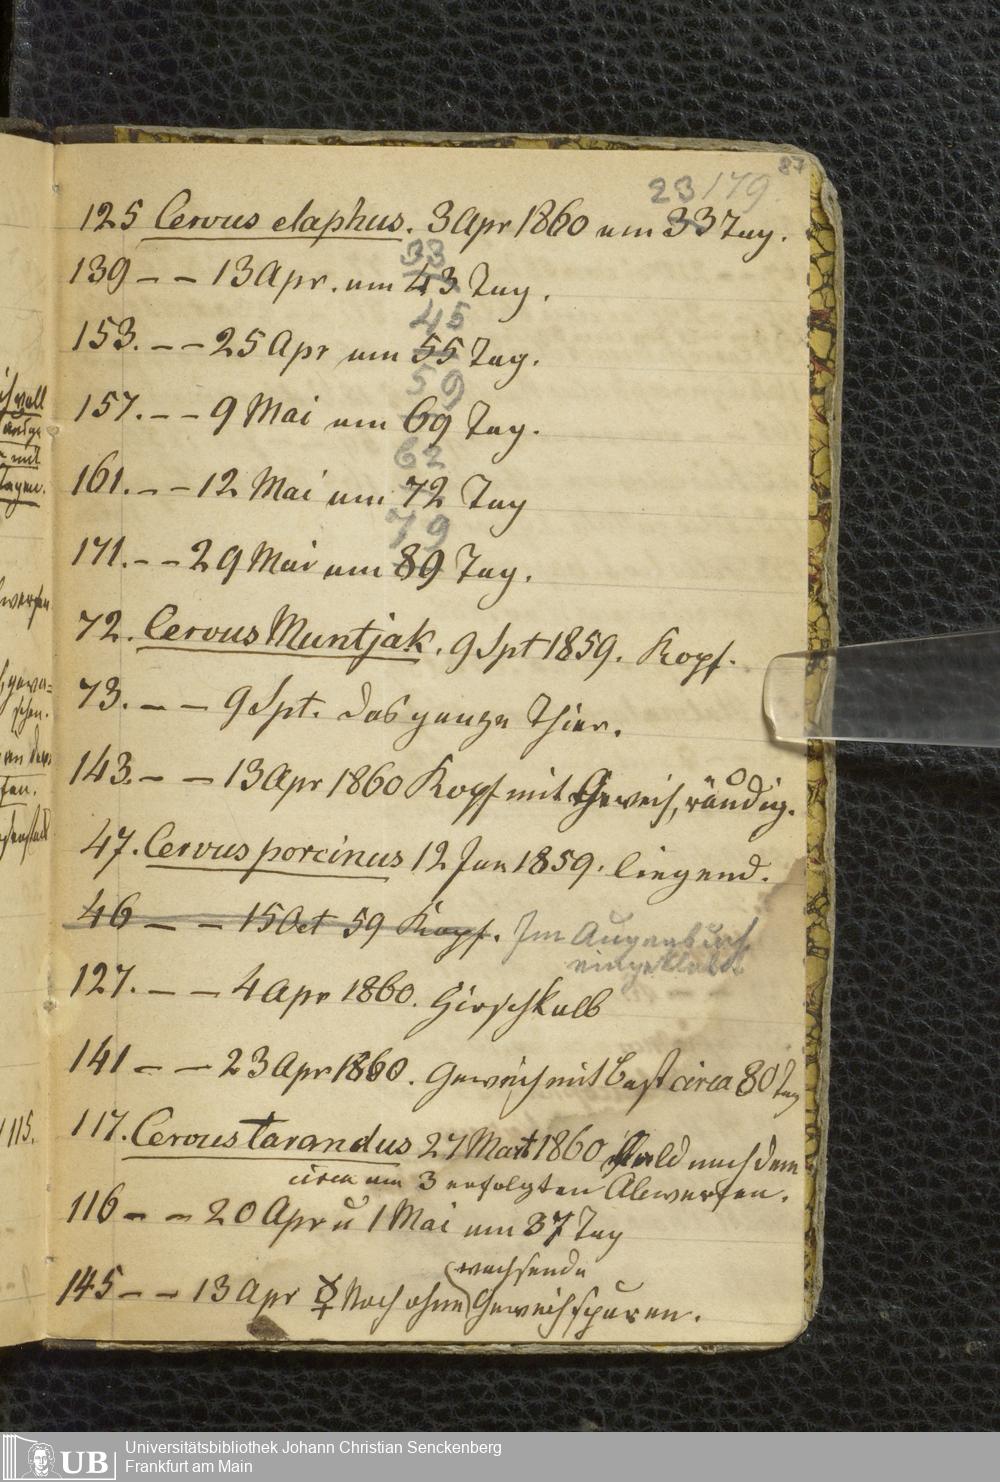 87
23 179
125 Cervus elaphus. 3 Apr 1860 am 33 Tag.
33
139 – – 13 Apr. am 43 Tag.
45
153. – – 25 Apr am 55 Tag.
59
157. – – 9 Mai am 69 Tag.
62
161. – – 12 Mai am 72 Tag
79
171. – – 29 Mai am 89 Tag.
72. Cervus Muntjak. 9 Spt 1859. Kopf.
73. – – 9 Spt. das ganze Thier.
143. – – 13 Apr 1860 Kopf mit Geweih, räudig.
47. Cervus porcinus 12 Jun 1859. liegend.
46 – – 15 Oct 59 Kopf. Im Augenbuch
eingeklebt
127. – – 4 Apr 1860. Hirschkalb
141 – – 23 Apr 1860. Geweih mit Bast circa 80 Tag
117. Cervus tarandus 27 Mart 1860 bald nach dem
circa am 3 erfolgten Abwerfen.
116 – – 20 Apr u 1 Mai am 37 Tag
wachsende
145 – – 13 Apr ♀ Noch ohne Geweihspuren.
115.
Universitätsbibliothek Johann Christian Senckenberg
Frankfurt am Main
UB